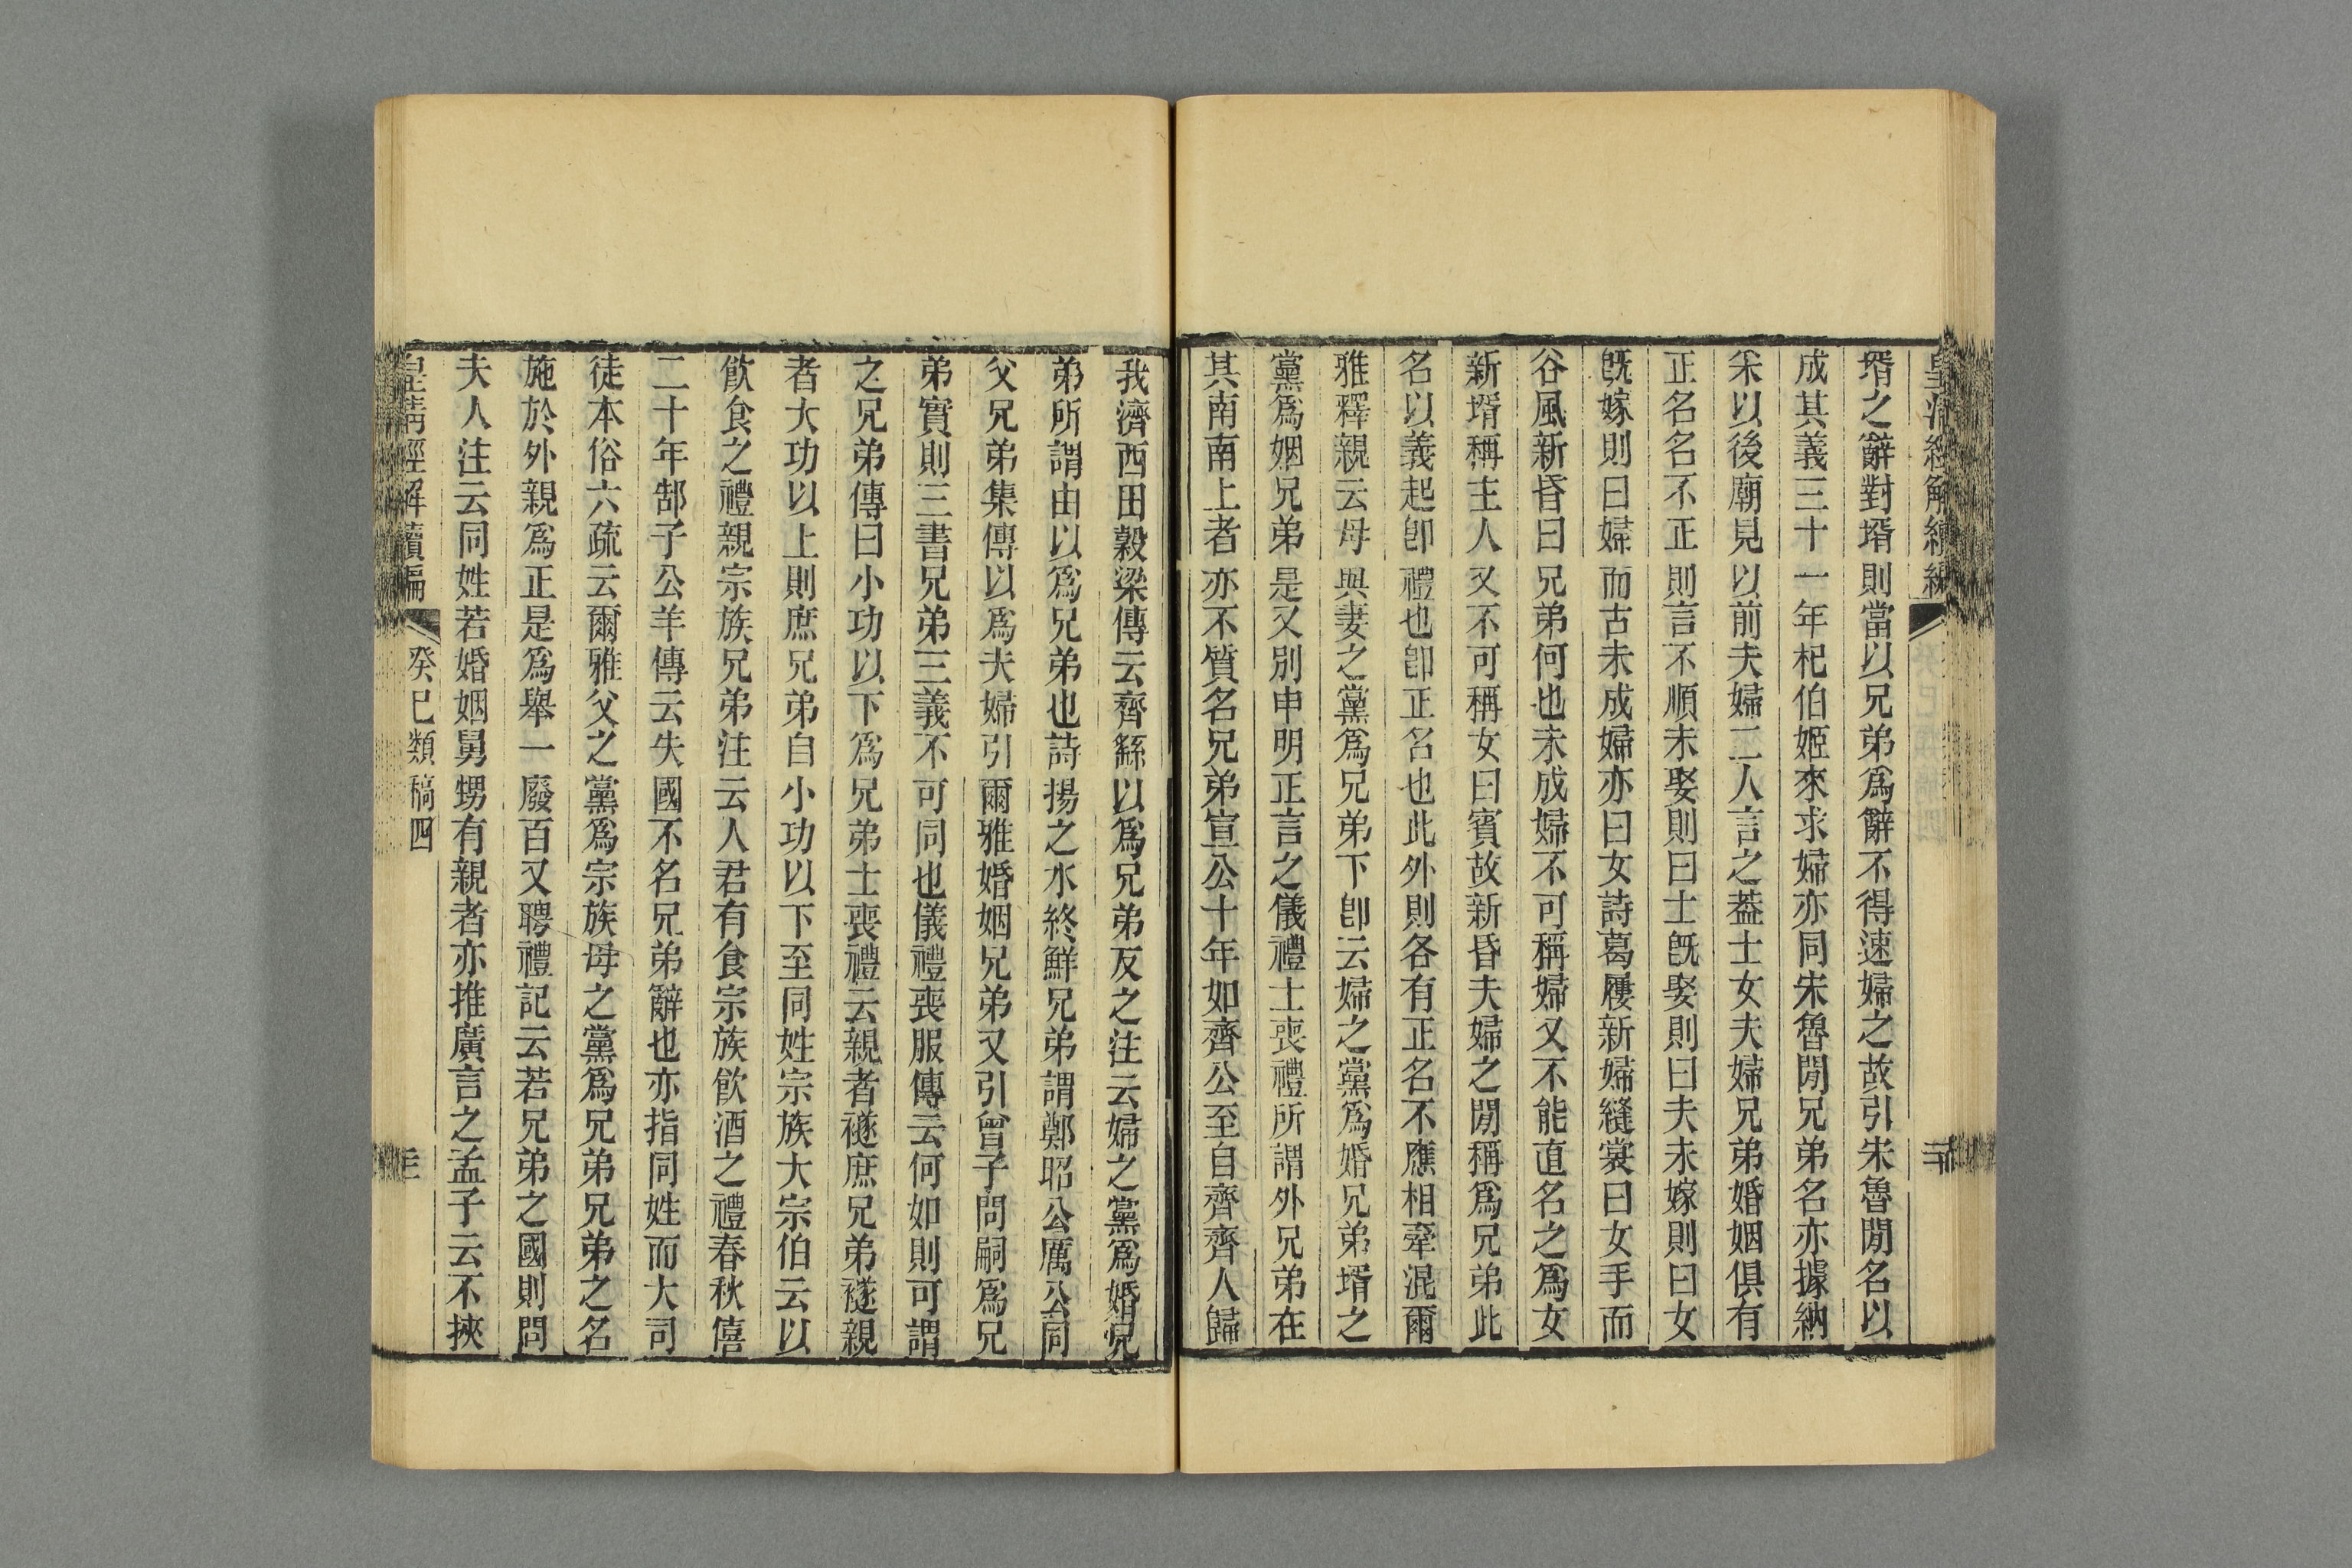 皇清經解續編
壻之辭對壻則當以兄弟爲辭不得速婦之故引朱魯閒名以
成其義三十一年杞伯姬來求婦亦同宋魯閒兄弟名亦據納
采以後廟見以前夫婦二人言之葢士女夫婦兄弟婚姻俱有
正名名不正則言不順未娶則曰士旣娶則曰夫未嫁則曰女
旣嫁則曰婦而古未成婦亦曰女詩葛屨新婦縫裳曰女手而
谷風新昏曰兄弟何也未成婦不可稱婦又不能直名之爲女
新壻稱主人又不可稱女曰賓故新昏夫婦之閒稱爲兄弟此
名以義起卽禮也卽正名也此外則各有正名不應相牽混爾
雅釋親云母與妻之黨爲兄弟下卽云婦之黨爲婚兄弟壻之
黨爲姻兄弟是又別申明正言之儀禮士喪禮所謂外兄弟在
其南南上者亦不質名兄弟宣公十年如齊公至自齊齊人歸
我濟西田穀梁傳云齊繇以爲兄弟反之注云婦之黨爲婚兄
弟所謂由以爲兄弟也詩揚之水終鮮兄弟謂鄭昭公厲公同
父兄弟集傳以爲夫婦引爾雅婚姻兄弟又引曾子問嗣爲兄
弟實則三書兄弟三義不可同也儀禮喪服傳云何如則可謂
之兄弟傳曰小功以下爲兄弟士喪禮云親者襚庶兄弟襚親
者大功以上則庶兄弟自小功以下至同姓宗族大宗伯云以
飮食之禮親宗族兄弟注云人君有食宗族飮酒之禮春秋僖
二十年郜子公羊傳云失國不名兄弟辭也亦指同姓而大司
徒本俗六疏云爾雅父之黨爲宗族母之黨爲兄弟兄弟之名
施於外親爲正是爲舉一廢百又聘禮記云若兄弟之國則問
夫人注云同姓若婚姻舅甥有親者亦推廣言之孟子云不挾
皇淸經解續編 癸巳類稿四